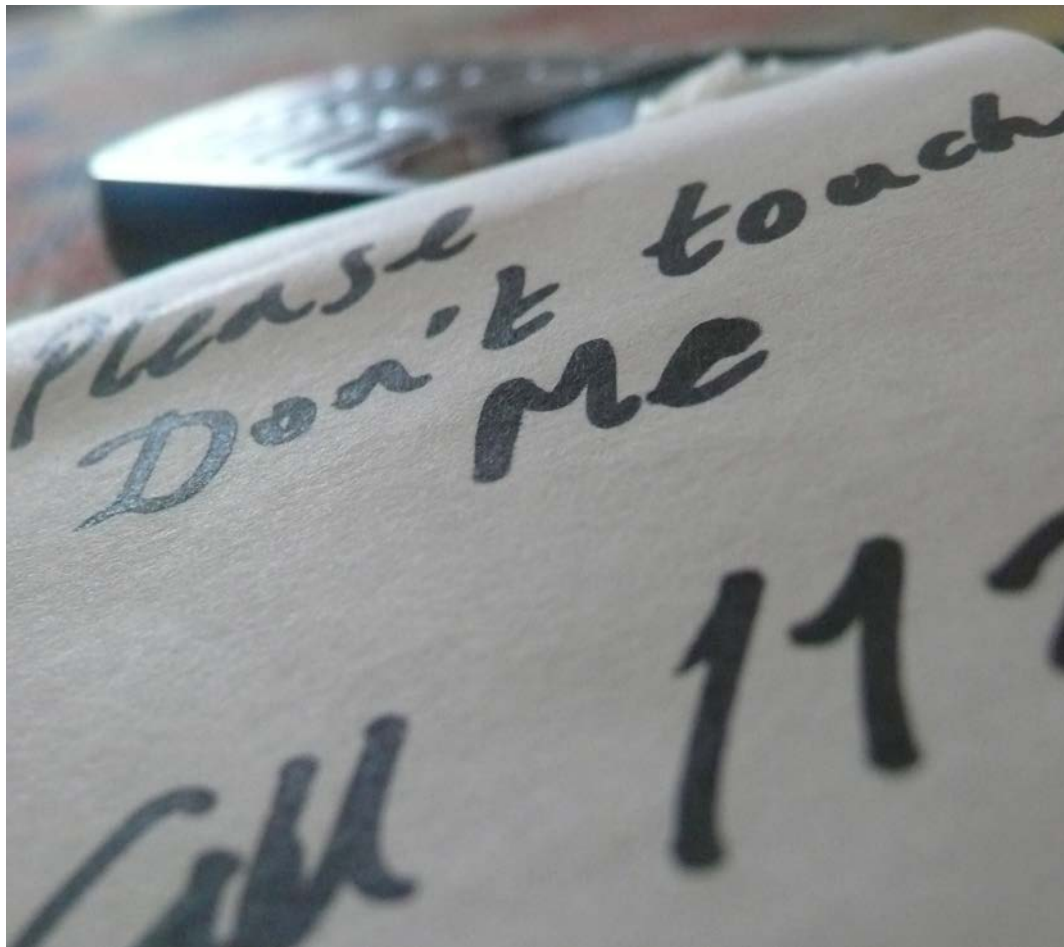 please
Don't touch
Me
Call 11